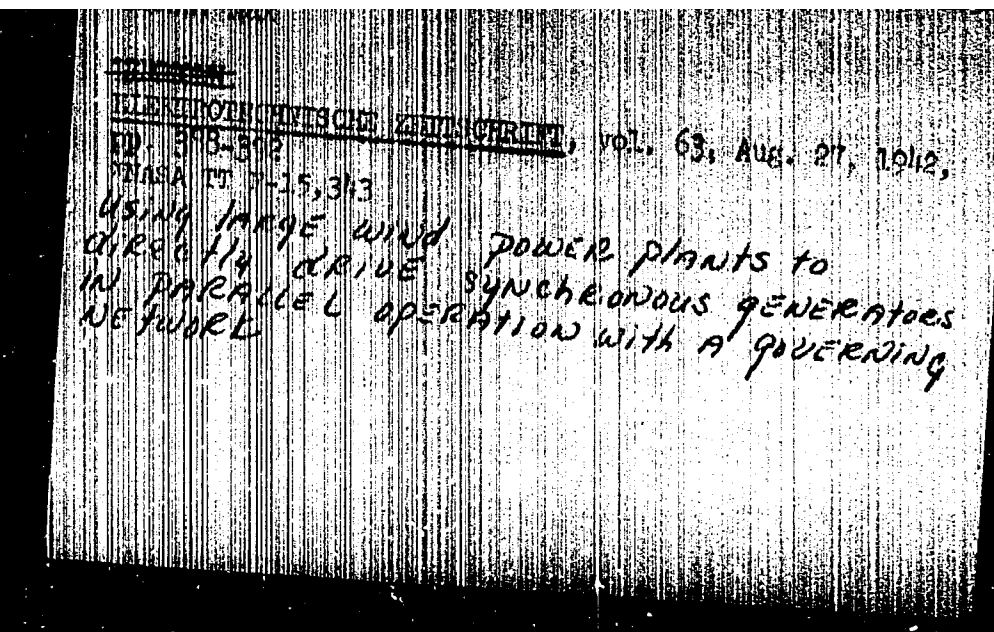 ELEKTROTECHNISCHE ZEITSCHRIFT, vol. 63, Aug. 27, 1942,
pp.
NASA TT F-15,343
USING LARGE WIND POWER PLANTS TO
DIRECTLY DRIVE SYNCHRONOUS GENERATORS
IN PARALLEL OPERATION WITH A GOVERNING
NETWORK